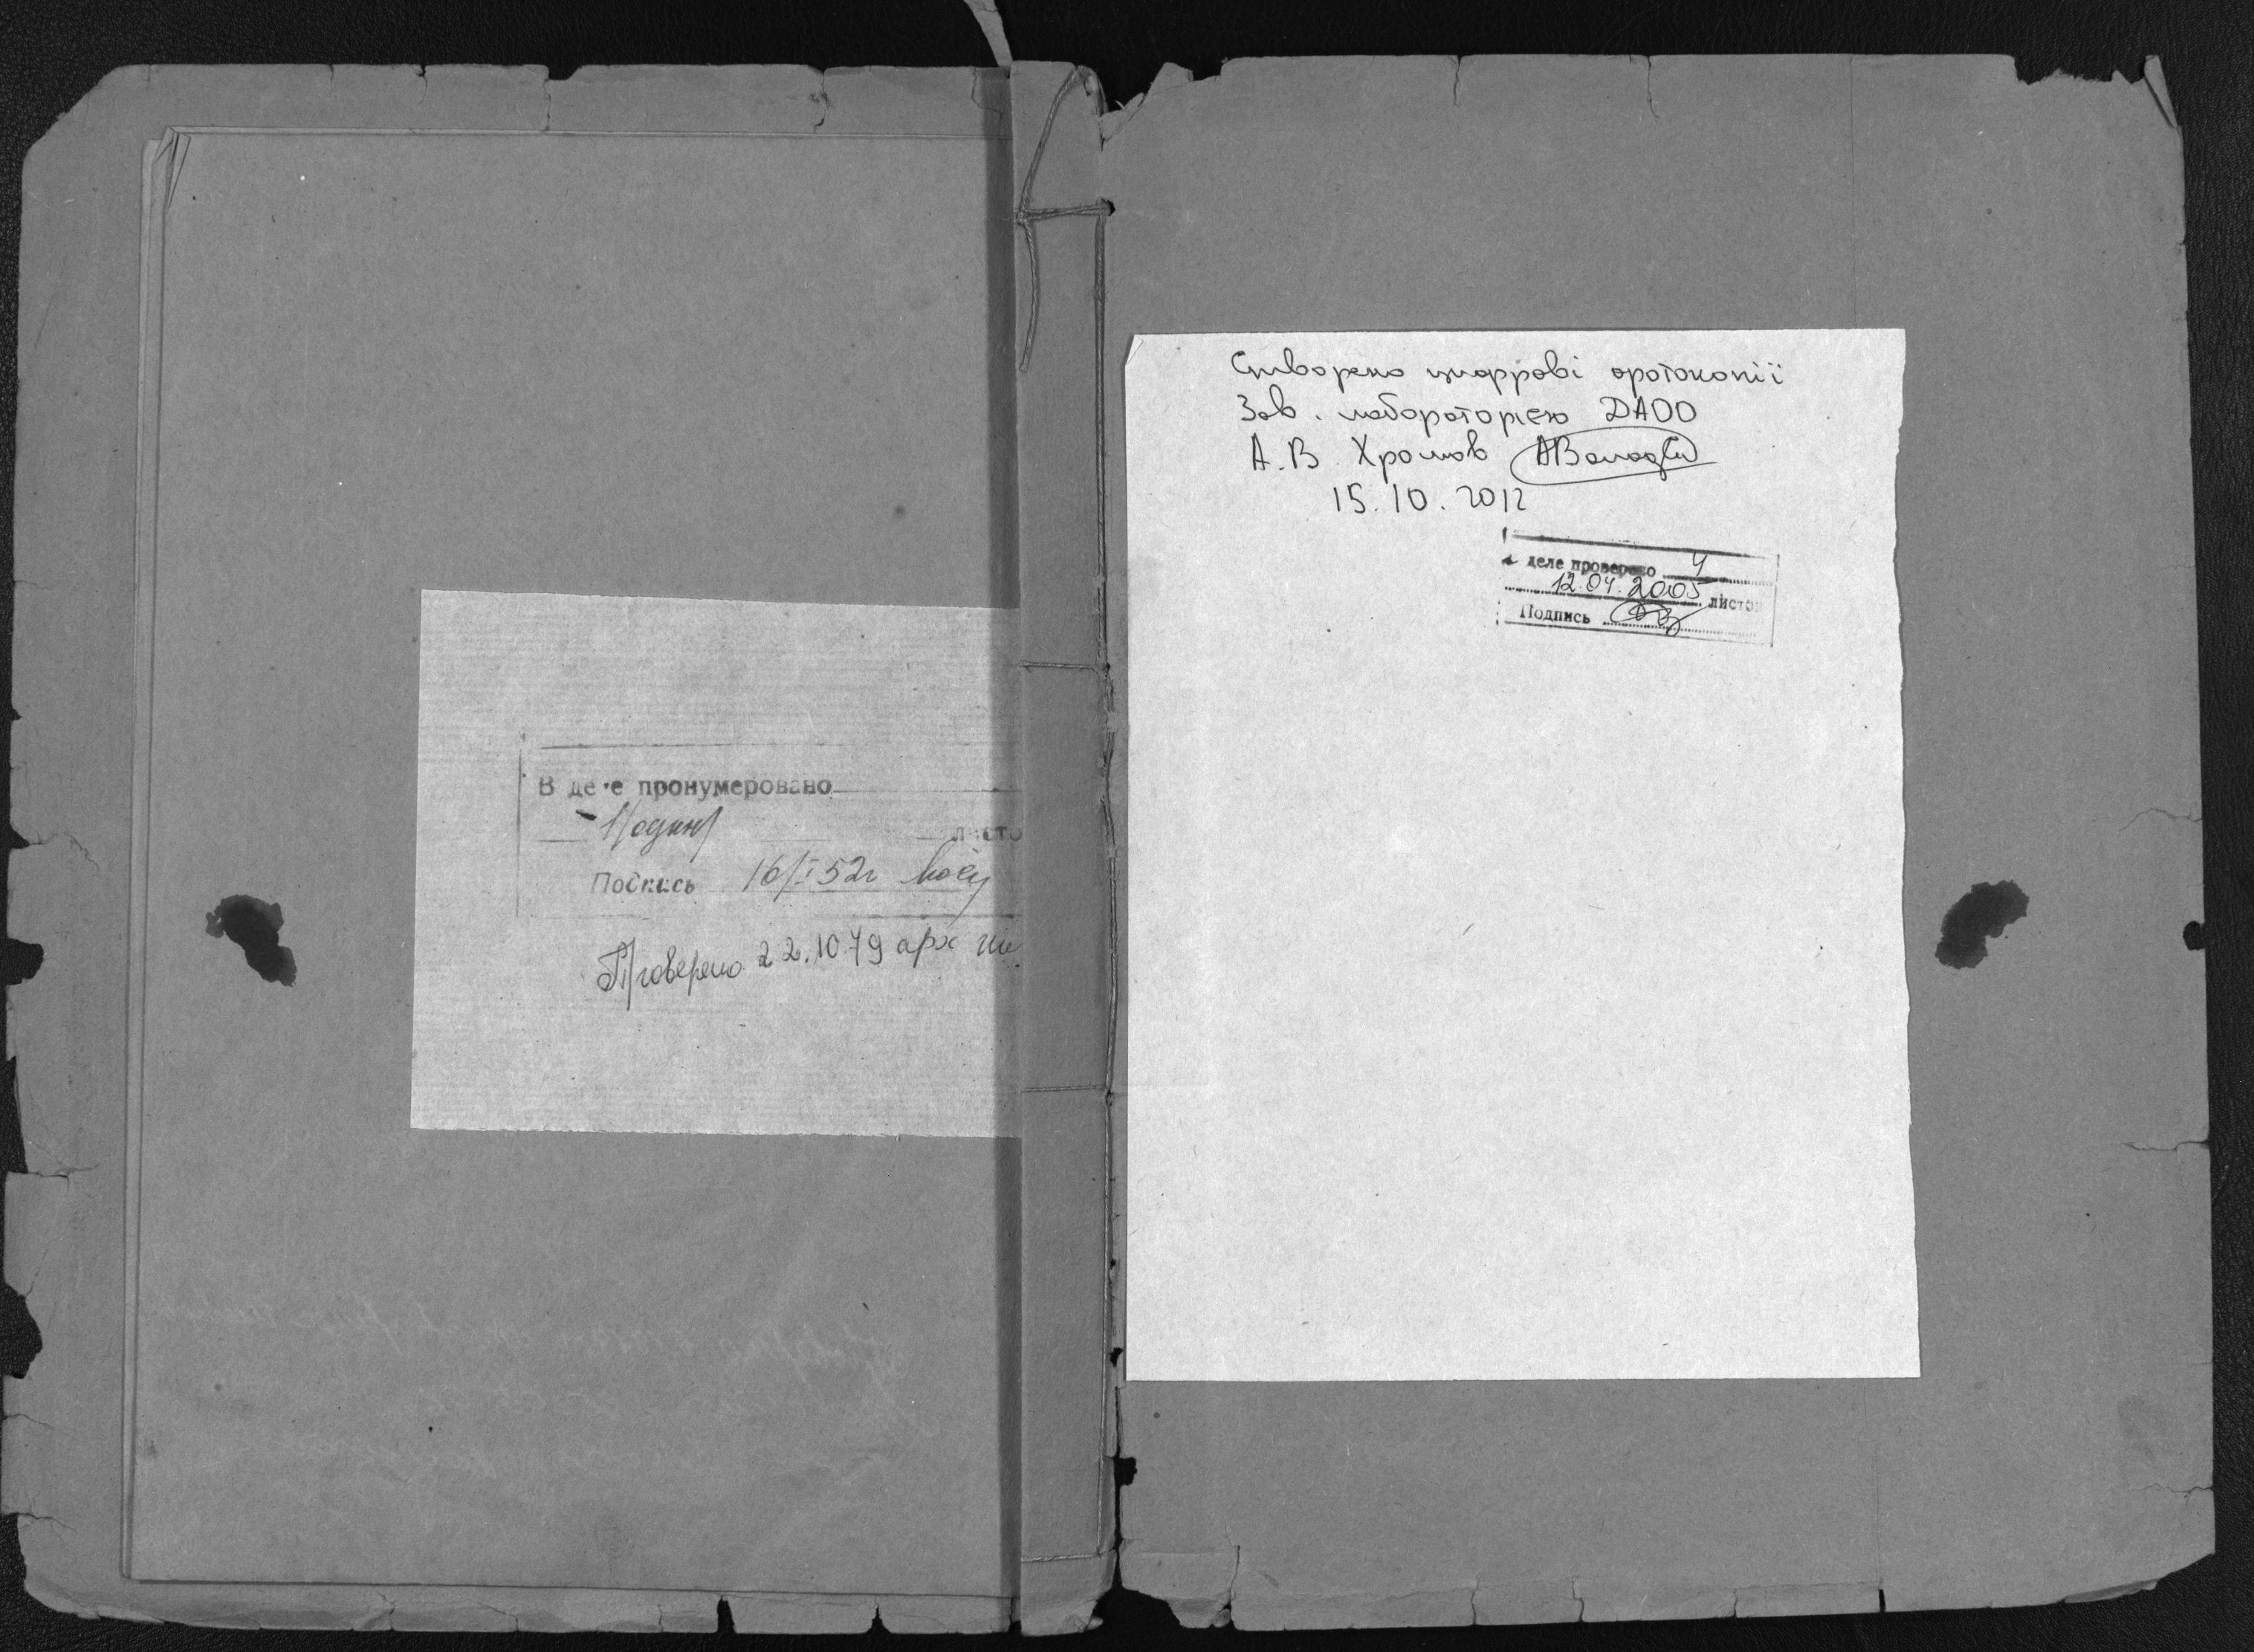 В деле пронумеровано
1/один/ листо
Подпись 16/I 52г
Проверено 22.10.79 арх
Створено цифрові фотокопії
Зав. лабораторією ДАОО
А.В. Хромов
15.10.2012
деле проверено 4
12.04.2005 листо
Подпись